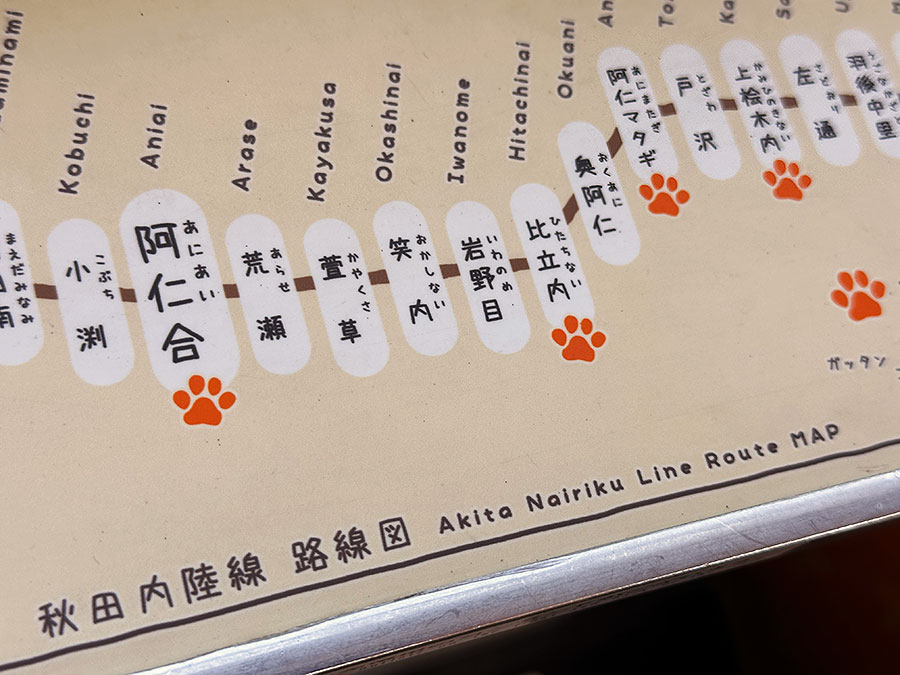 Kobuchi
Aniai
Arase
Kayakusa
Okashinai
Iwanome
Hitachinai
Okuani
まえだみなみ
南
小渕
こぶち
阿仁合
あにあい
荒瀬
あらせ
萱草
かやくさ
笑内
おかしない
岩野目
いわのめ
比立内
ひたちない
奥阿仁
おくあに
阿仁マタギ
あにまたぎ
戸沢
とざわ
上桧木内
かみひのきない
左通
さどおり
羽後中里
うごなかざと
ガッタン
秋田内陸線 路線図 Akita Nairiku Line Route MAP